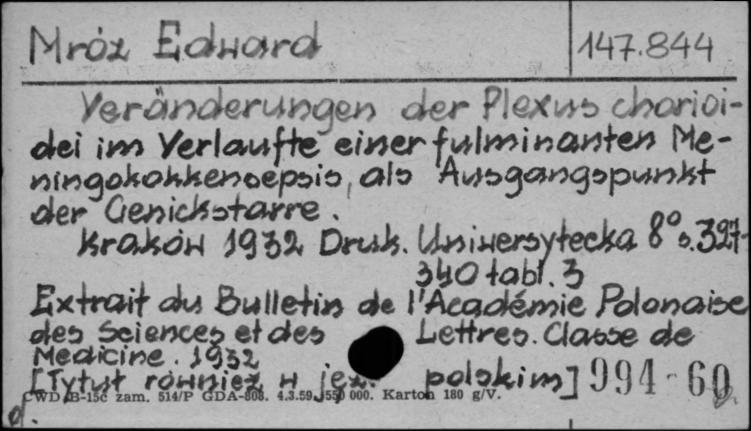 Mróz Edward 147.844
Veränderungen der Plexus chorioi-
dei im Verlaufte einer fulminanten Me-
ningokokkensepsis, als Ausgangspunkt
der Genickstarre.
Kraków 1932 Druk. Uniwersytecka 8° s. 327-
340 tabl. 3
Extrait du Bulletin de l'Académie Polonaise
des Sciences et des Lettres. Classe de
Medicine. 1932
[Tytuł również w jęz. polskim] 994-60
CWD B-15c zam. 514/P GDA-808. 4.3.59. 550 000. Karton 180 g/V.